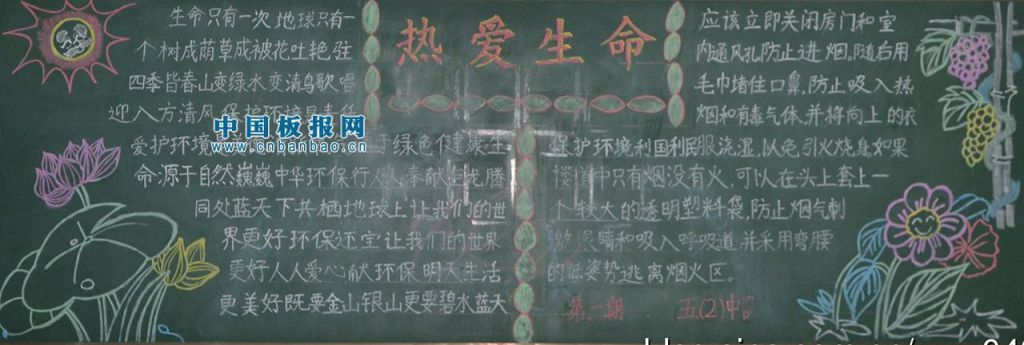 热爱生命
生命只有一次 地球只有一
个树成荫草成被花吐艳驻
四季皆春山变绿水变清鸟歌唱
迎入方清风保护环境
爱护环境 于绿色健康生
命源于自然巍巍中华环保行人人奉献 优胜
同处蓝天下共栖地球上让我们的世
界更好环保还宝让我们的世界
更好人人爱心献环保明天生活
更美好既要金山银山更要碧水蓝天
应该立即关闭房门和室
内通风孔防止进烟。随后用
毛巾堵住口鼻,防止吸入热
烟和有毒气体,并将向上的衣
保护环境利国利民服浇湿,以免引火烧身如果
楼道中只有烟没有火,可以在头上套上一
个较大的透明塑料袋,防止烟气刺
激眼睛和吸入呼吸道并采用弯腰
的低姿势逃离烟火区。
第二期 五(2)中
中国板报网
www.cnbanbao.cn